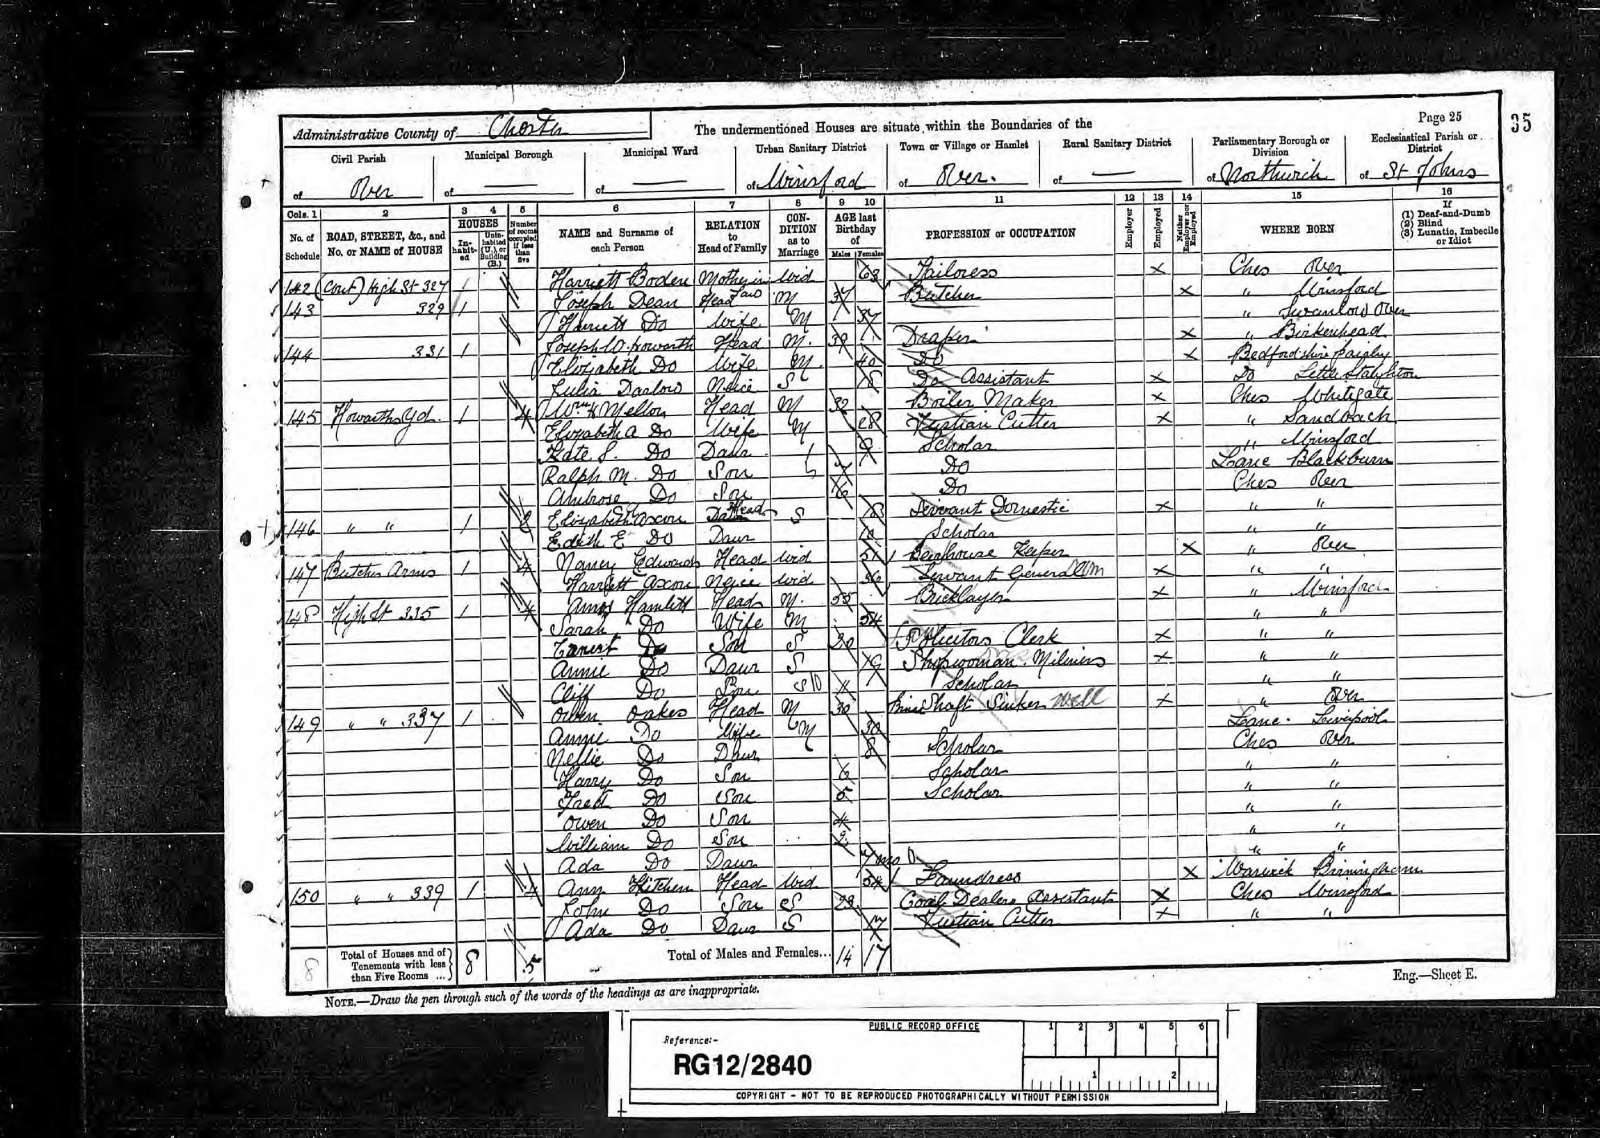 Page 25
35
Administrative County of Chester
The undermentioned Houses are situate within the Boundaries of the
Civil Parish
of Over
Municipal Borough
of —
Municipal Ward
of —
Urban Sanitary District
of Winsford
Town or Village or Hamlet
of Over.
Rural Sanitary District
of —
Parliamentary Borough or Division
of Northwich
Ecclesiastical Parish or District
of St Johns
Cols. 1 2 3 4 5 6 7 8 9 10 11 12 13 14 15 16
No. of Schedule
ROAD, STREET, &c., and No. or NAME of HOUSE
HOUSES
In-habit-ed
Unin-habited (U.), or Building (B.)
Number of rooms occupied if less than five
NAME and Surname of each Person
RELATION to Head of Family
CON-DITION as to Marriage
AGE last Birthday of
Males Females
PROFESSION or OCCUPATION
Employer
Employed
Neither Employer nor Employed
WHERE BORN
If
(1) Deaf-and-Dumb
(2) Blind
(3) Lunatic, Imbecile or Idiot
142 (Cont) High St 327 1 Harriett Boden Mother in Law Wid 63 Tailoress X Ches Over
143 329 1 Joseph Dean Head M 37 Butcher X " Winsford
Harriett Do Wife M 37 " Swanlow Over
144 331 1 Joseph W. Howarth Head M. 39 Draper X " Birkenhead
Elizabeth Do Wife M. 40 Do X Bedfordshire
Julia Darlow Neice S 18 Do Assistant X Do Little Staughton
145 Howarths Yd. 1 4 Wm H Mellor Head M 32 Boiler Maker X Ches Whitegate
Elizabeth A Do Wife M 28 Fustian Cutter X " Sandbach
Kate S. Do Daur 9 Scholar " Winsford
Ralph M. Do Son 7 Do Lanc Blackburn
Ambrose Do Son 6 Do Ches Over
146 " " 1 2 Elizabeth Axon Head S 18 Servant Domestic X " "
Edith E Do Daur 10 Scholar " "
147 Butchers Arms 1 4 Nancy Edwards Head Wid 51 Beerhouse Keeper X " Over
Harriett Axon Neice Wid 36 Servant General X " "
148 High St 335 1 4 Amos Hamlett Head M. 55 Bricklayer X " Winsford
Sarah Do Wife M 54 " "
Ernest Do Son S 20 Solicitors Clerk X " "
Annie Do Daur S 19 Shopwoman Miliners X " "
Cliff Do Son S 11 Scholar " "
149 " " 337 1 Owen Oakes Head M 30 Brine Shaft Sinker Well X " Over
Annie Do Wife M 30 Lanc. Liverpool
Nellie Do Daur 8 Scholar Ches Over
Harry Do Son 6 Scholar " "
Fred Do Son 5 Scholar " "
Owen Do Son 4 " "
William Do Son 2 " "
Ada Do Daur 7 mo " "
150 " " 339 1 4 Ann Hitchen Head Wid 54 Laundress X Warwick Birmingham
John Do Son S 23 Coal Dealers Assistant X Ches Winsford
Ada Do Daur S 17 Fustian Cutter X " "
8 Total of Houses and of Tenements with less than Five Rooms ... 8 5 Total of Males and Females... 14 17
NOTE.—Draw the pen through such of the words of the headings as are inappropriate.
Eng.—Sheet E.
PUBLIC RECORD OFFICE
1 2 3 4 5 6
Reference:-
RG12/2840
1 2
COPYRIGHT - NOT TO BE REPRODUCED PHOTOGRAPHICALLY WITHOUT PERMISSION